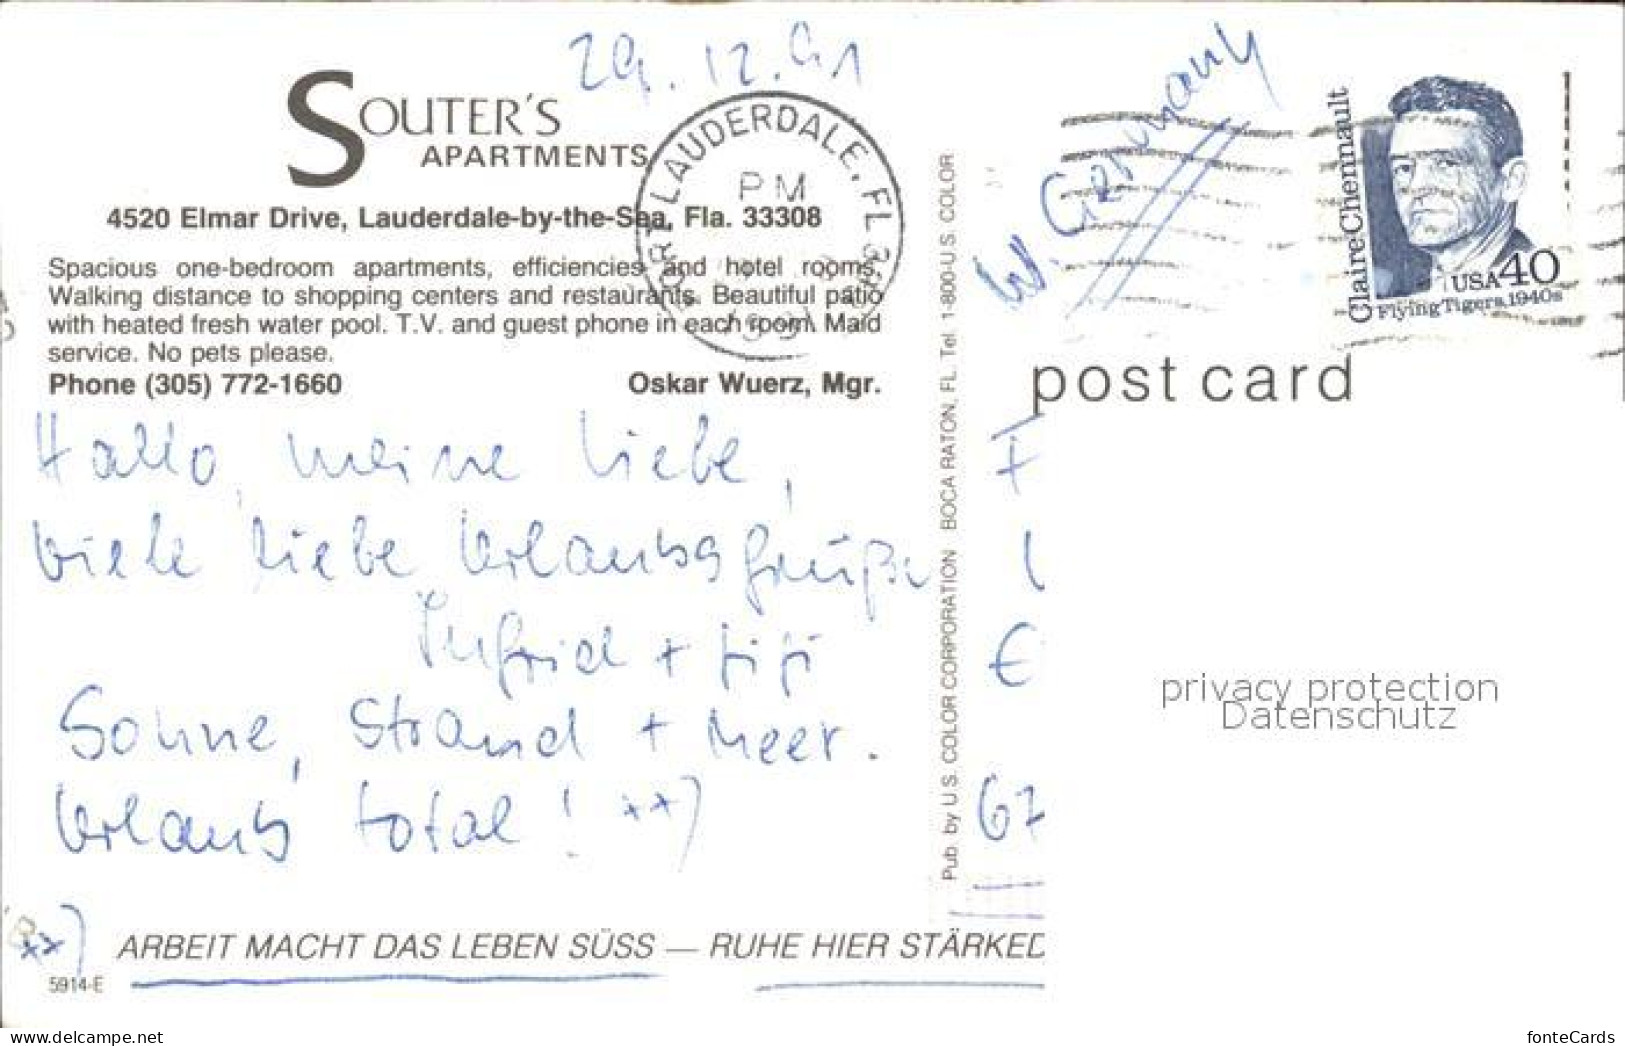 29.12.91
SOUTER'S
APARTMENTS
4520 Elmar Drive, Lauderdale-by-the-Sea, Fla. 33308
Spacious one-bedroom apartments, efficiencies and hotel rooms.
Walking distance to shopping centers and restaurants. Beautiful patio
with heated fresh water pool. T.V. and guest phone in each room. Maid
service. No pets please.
Phone (305) 772-1660 Oskar Wuerz, Mgr.
FORT LAUDERDALE, FL
PM
Hallo, meine Liebe,
viele liebe Urlaubsgrüße
Ingrid +
Sonne, Strand + Meer.
Urlaub total! **)
**) ARBEIT MACHT DAS LEBEN SÜSS — RUHE HIER STÄRKED
5914-E
Pub by U.S. COLOR CORPORATION BOCA RATON, FL. Tel. 1-800-U.S. COLOR
W. Germany
Claire Chennault
USA 40
Flying Tigers, 1940s
post card
F
E
67
privacy protection
Datenschutz
www.delcampe.net
fonteCards